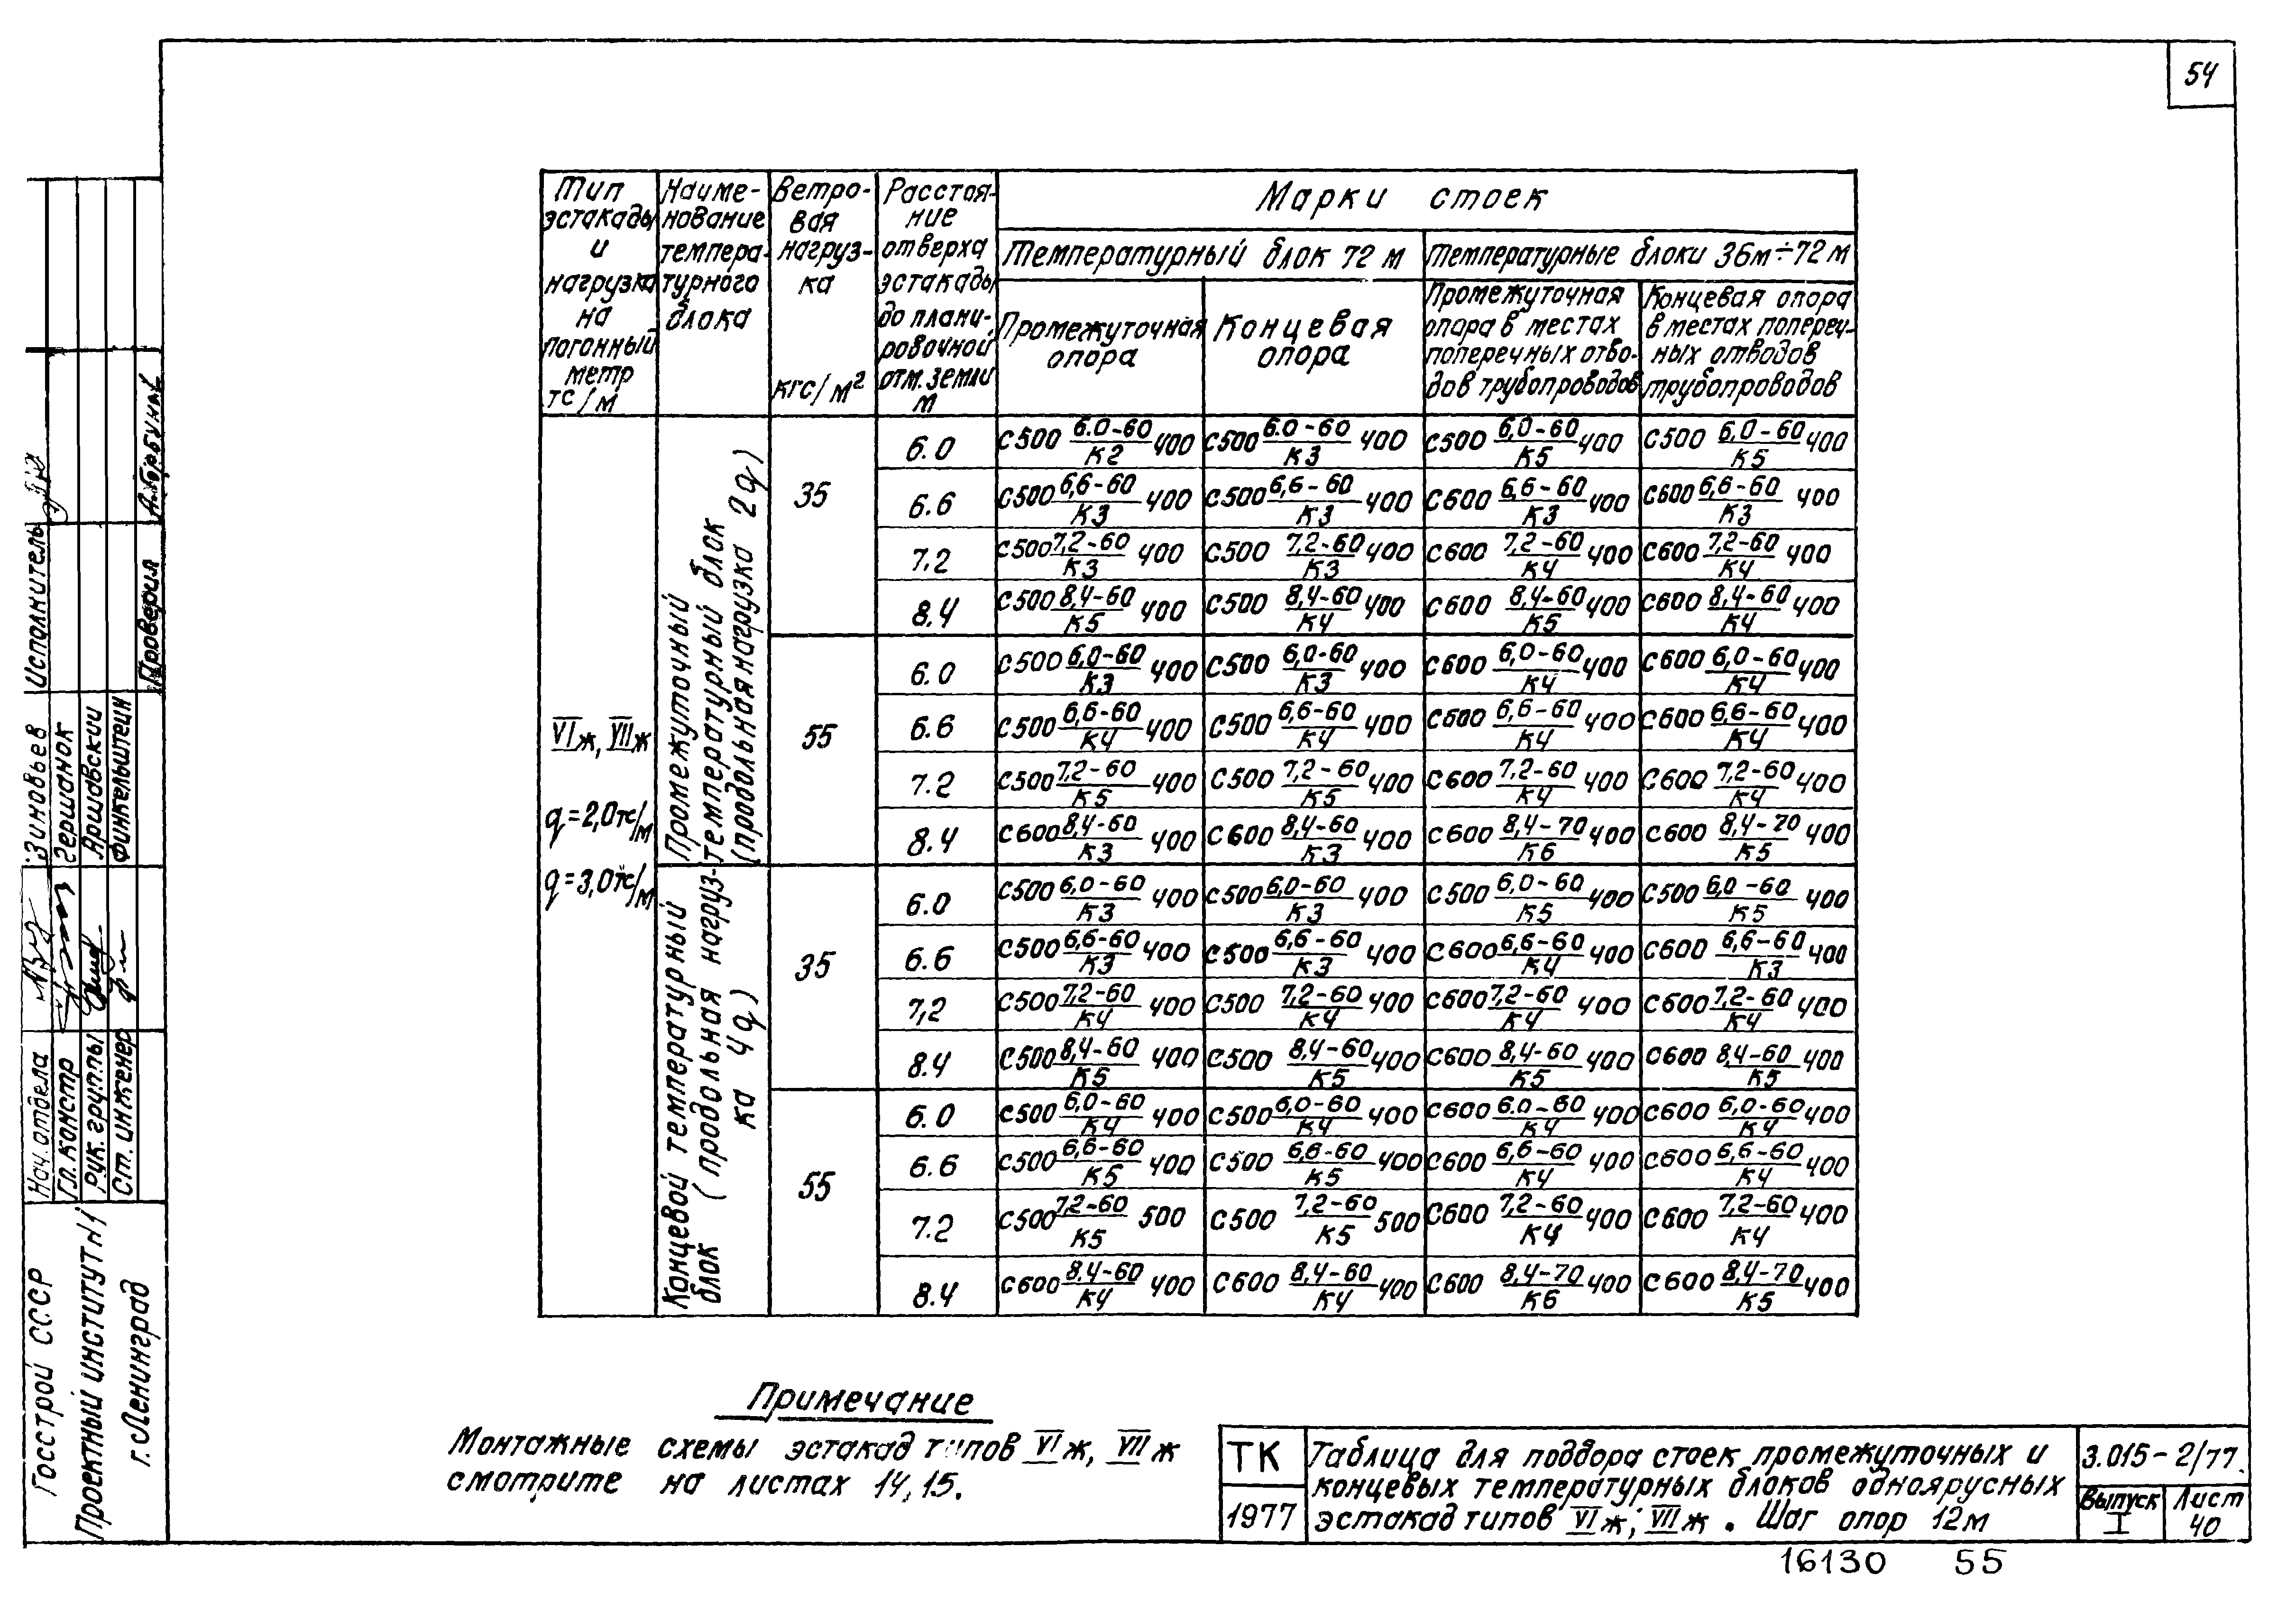 54
Тип эстакады и нагрузка на погонный метр тс/м
Наименование температурного блока
Ветровая нагрузка кгс/м²
Расстояние от верха эстакады до планировочной отм. земли м
Марки стоек
Температурный блок 72 м
Температурные блоки 36м÷72м
Промежуточная опора
Концевая опора
Промежуточная опора в местах поперечных отводов трубопроводов
Концевая опора в местах поперечных отводов трубопроводов
VIж, VIIж
q=2,0тс/м
q=3,0тс/м
Промежуточный температурный блок (продольная нагрузка 2q)
35
6.0 С500 6.0-60/К2 400 С500 6.0-60/К3 400 С500 6,0-60/К5 400 С500 6,0-60/К5 400
6.6 С500 6,6-60/К3 400 С500 6,6-60/К3 400 С600 6,6-60/К3 400 С600 6,6-60/К3 400
7,2 С500 7,2-60/К3 400 С500 7,2-60/К3 400 С600 7,2-60/К4 400 С600 7,2-60/К4 400
8.4 С500 8,4-60/К5 400 С500 8,4-60/К4 400 С600 8,4-60/К5 400 С600 8,4-60/К4 400
55
6.0 С500 6,0-60/К3 400 С500 6,0-60/К3 400 С600 6,0-60/К4 400 С600 6,0-60/К4 400
6.6 С500 6,6-60/К4 400 С500 6,6-60/К4 400 С600 6,6-60/К4 400 С600 6,6-60/К4 400
7.2 С500 7,2-60/К5 400 С500 7,2-60/К5 400 С600 7,2-60/К4 400 С600 7,2-60/К4 400
8.4 С600 8,4-60/К3 400 С600 8,4-60/К3 400 С600 8,4-70/К6 400 С600 8,4-70/К5 400
Концевой температурный блок (продольная нагрузка 4q)
35
6.0 С500 6,0-60/К3 400 С500 6,0-60/К3 400 С500 6,0-60/К5 400 С500 6,0-60/К5 400
6.6 С500 6,6-60/К3 400 С500 6,6-60/К3 400 С600 6,6-60/К4 400 С600 6,6-60/К3 400
7,2 С500 7,2-60/К4 400 С500 7,2-60/К4 400 С600 7,2-60/К4 400 С600 7,2-60/К4 400
8.4 С500 8,4-60/К5 400 С500 8,4-60/К5 400 С600 8,4-60/К5 400 С600 8,4-60/К5 400
55
6.0 С500 6,0-60/К4 400 С500 6,0-60/К4 400 С600 6.0-60/К4 400 С600 6,0-60/К4 400
6.6 С500 6,6-60/К5 400 С500 6,6-60/К5 400 С600 6,6-60/К4 400 С600 6,6-60/К4 400
7.2 С500 7,2-60/К5 500 С500 7,2-60/К5 500 С600 7,2-60/К4 400 С600 7,2-60/К4 400
8.4 С600 8,4-60/К4 400 С600 8,4-60/К4 400 С600 8,4-70/К6 400 С600 8,4-70/К5 400
Примечание
Монтажные схемы эстакад типов VIж, VIIж
смотрите на листах 14,15.
ТК
1977
Таблица для подбора стоек промежуточных и
концевых температурных блоков одноярусных
эстакад типов VIж; VIIж. Шаг опор 12м
3.015-2/77.
Выпуск I
Лист 40
16130 55
Госстрой СССР
Проектный институт №1
г. Ленинград
Нач. отдела Зиновьев
Гл. констр Гершанок
Рук. группы Аршавский
Ст. инженер Финкельштейн
Исполнитель
Проверил